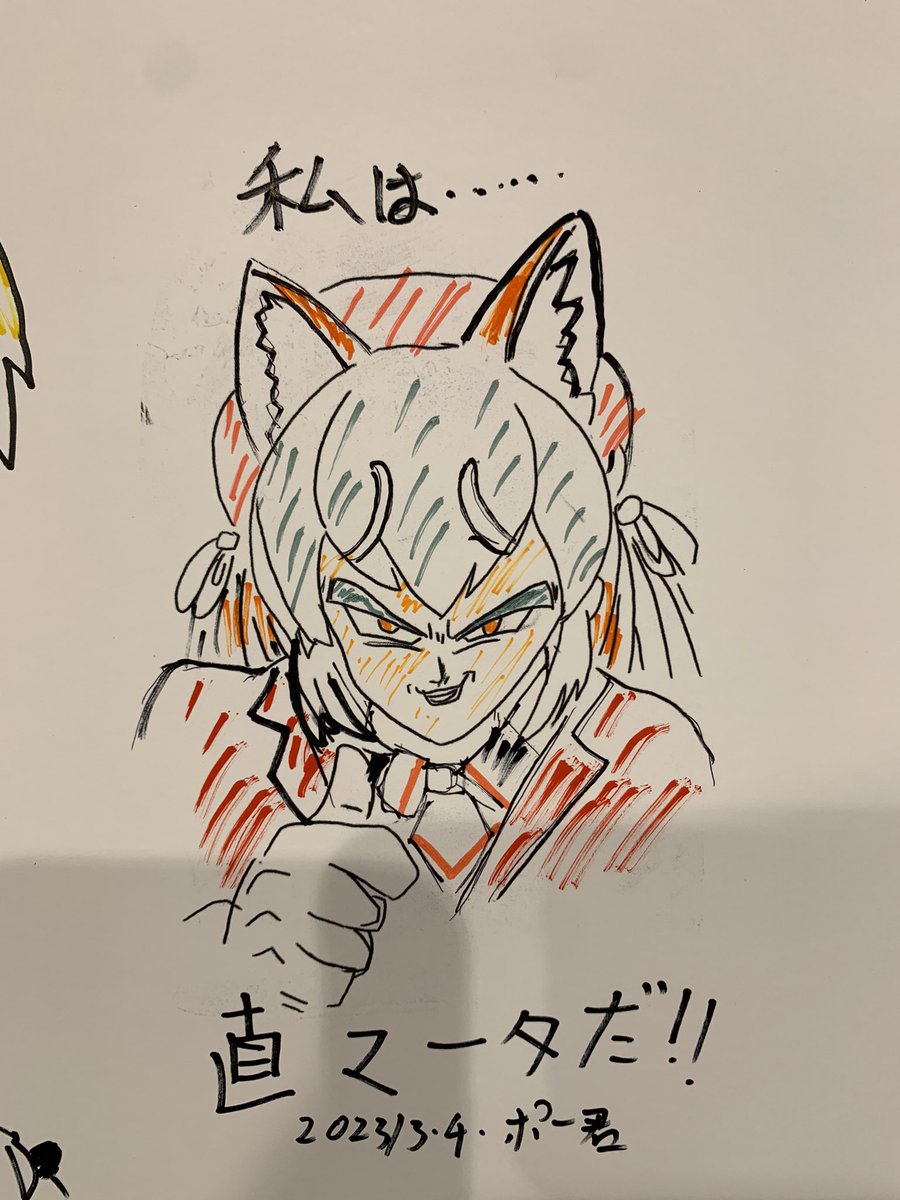 私は……
直マータだ!!
2023/3.4.ポー君